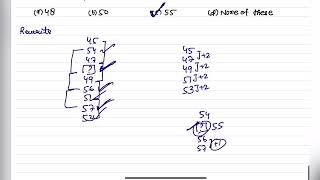 (a) 48 (b) 50 (c) 55 (d) None of these
Rewrite
45
54
47
[?]
49
56
51
57
53
45
47 ]+2
49 ]+2
51 ]+2
53 ]+2
54
[?] 55
56
57 +1